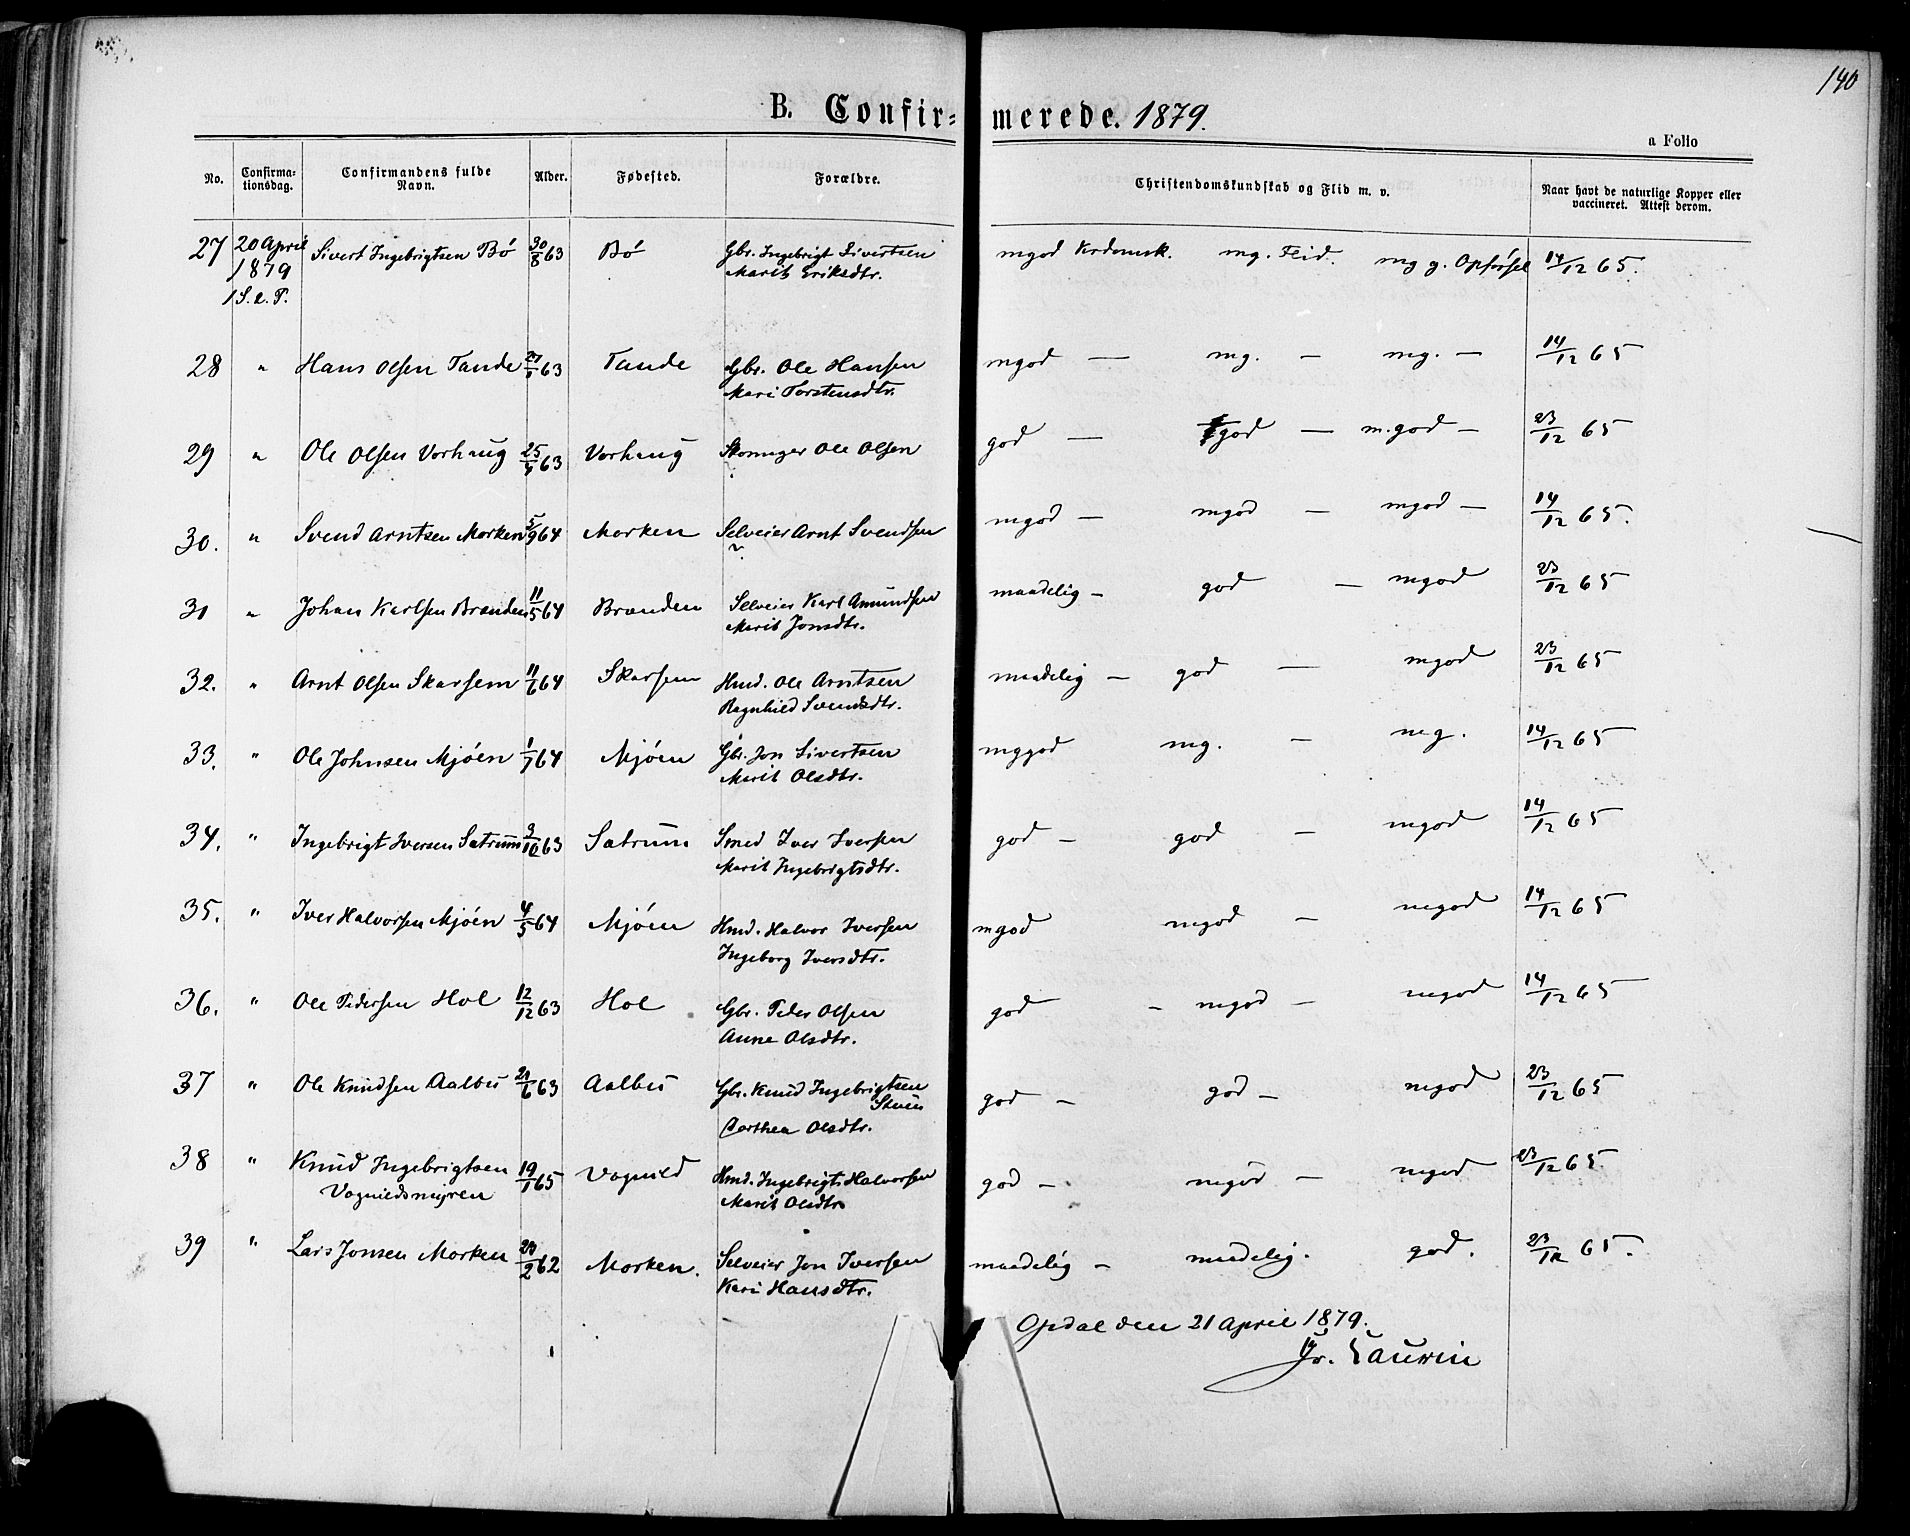 140
B. Confirmerede. 1879.
a Folio
No. Confirmationsdag. Confirmandens fulde Navn. Alder. Fødested. Forældre. Christendomskundskab og Flid m. v. Naar havt de naturlige Kopper eller vaccineret. Attest derom.
27 20 April 1879 1 S. e. P. Sivert Ingebrigtsen Bö 30/8 63 Bö Gbr. Ingebrigt Sivertsen mgod Krdomsk. mg. Flid. mg g. Opförsel 14/12 65.
Marit Eriksdtr.
28 " Hans Olsen Tande 63 Tande Gbr. Ole Hansen mgod — mg. — mg. — 14/12 65
Mari Torstensdtr.
29 " Ole Olsen Vorhaug 25/ 63 Vorhaug Ole Olsen god — god — m.god — 23/12 65
30. " Svend Arntsen Morken 5/9 64 Morken Selveier Arnt Svendsen mgod — mgod — mgod — 14/12 65.
31 " Johan Karlsen Brænden 11/5 64 Brænden Selveier Karl Amundsen maadelig — god — mgod 23/12 65
Marit Jonsdtr.
32. " Arnt Olsen Skarsem 11/6 64 Skarsem Hmd. Ole Arntsen maadelig — god — mgod 23/12 65
Ragnhild Svendsdtr.
33. " Ole Johnsen Mjöen 1/7 64 Mjöen Gbr. Jon Sivertsen mggod mg. — mg. 14/12 65
Marit Olsdtr.
34. " Ingebrigt Iversen Satrum 3/10 63 Satrum Smed Iver Iversen god — god — mgod 14/12 65
Marit Ingebrigtsdtr.
35. " Iver Halvorsen Mjöen 4/5 64 Mjöen Hmd. Halvor Iversen mgod mgod — mgod 14/12 65
Ingeborg Iversdtr.
36. " Ole Pedersen Hol 12/12 63 Hol Gbr. Peder Olsen god — mgod — mgod 14/12 65
Anne Olsdtr.
37 " Ole Knudsen Aalbu 21/6 63 Aalbu Gbr. Knud Ingebrigtsen god — god — mgod 23/12 65
Dorthea Olsdtr.
38 " Knud Ingebrigtsen 19/1 65 Vognild Hmd. Ingebrigt Halvorsen god — mgod — mgod 23/12 65.
Vognildsmyren Marit Olsdtr
39 " Lars Jonsen Morken 23/2 62 Morken. Selveier Jon Iversen maadelig — maadelig. god. 23/12 65.
Kari Hansdtr.
Opdal den 21 April 1879.
Jr. Laurin